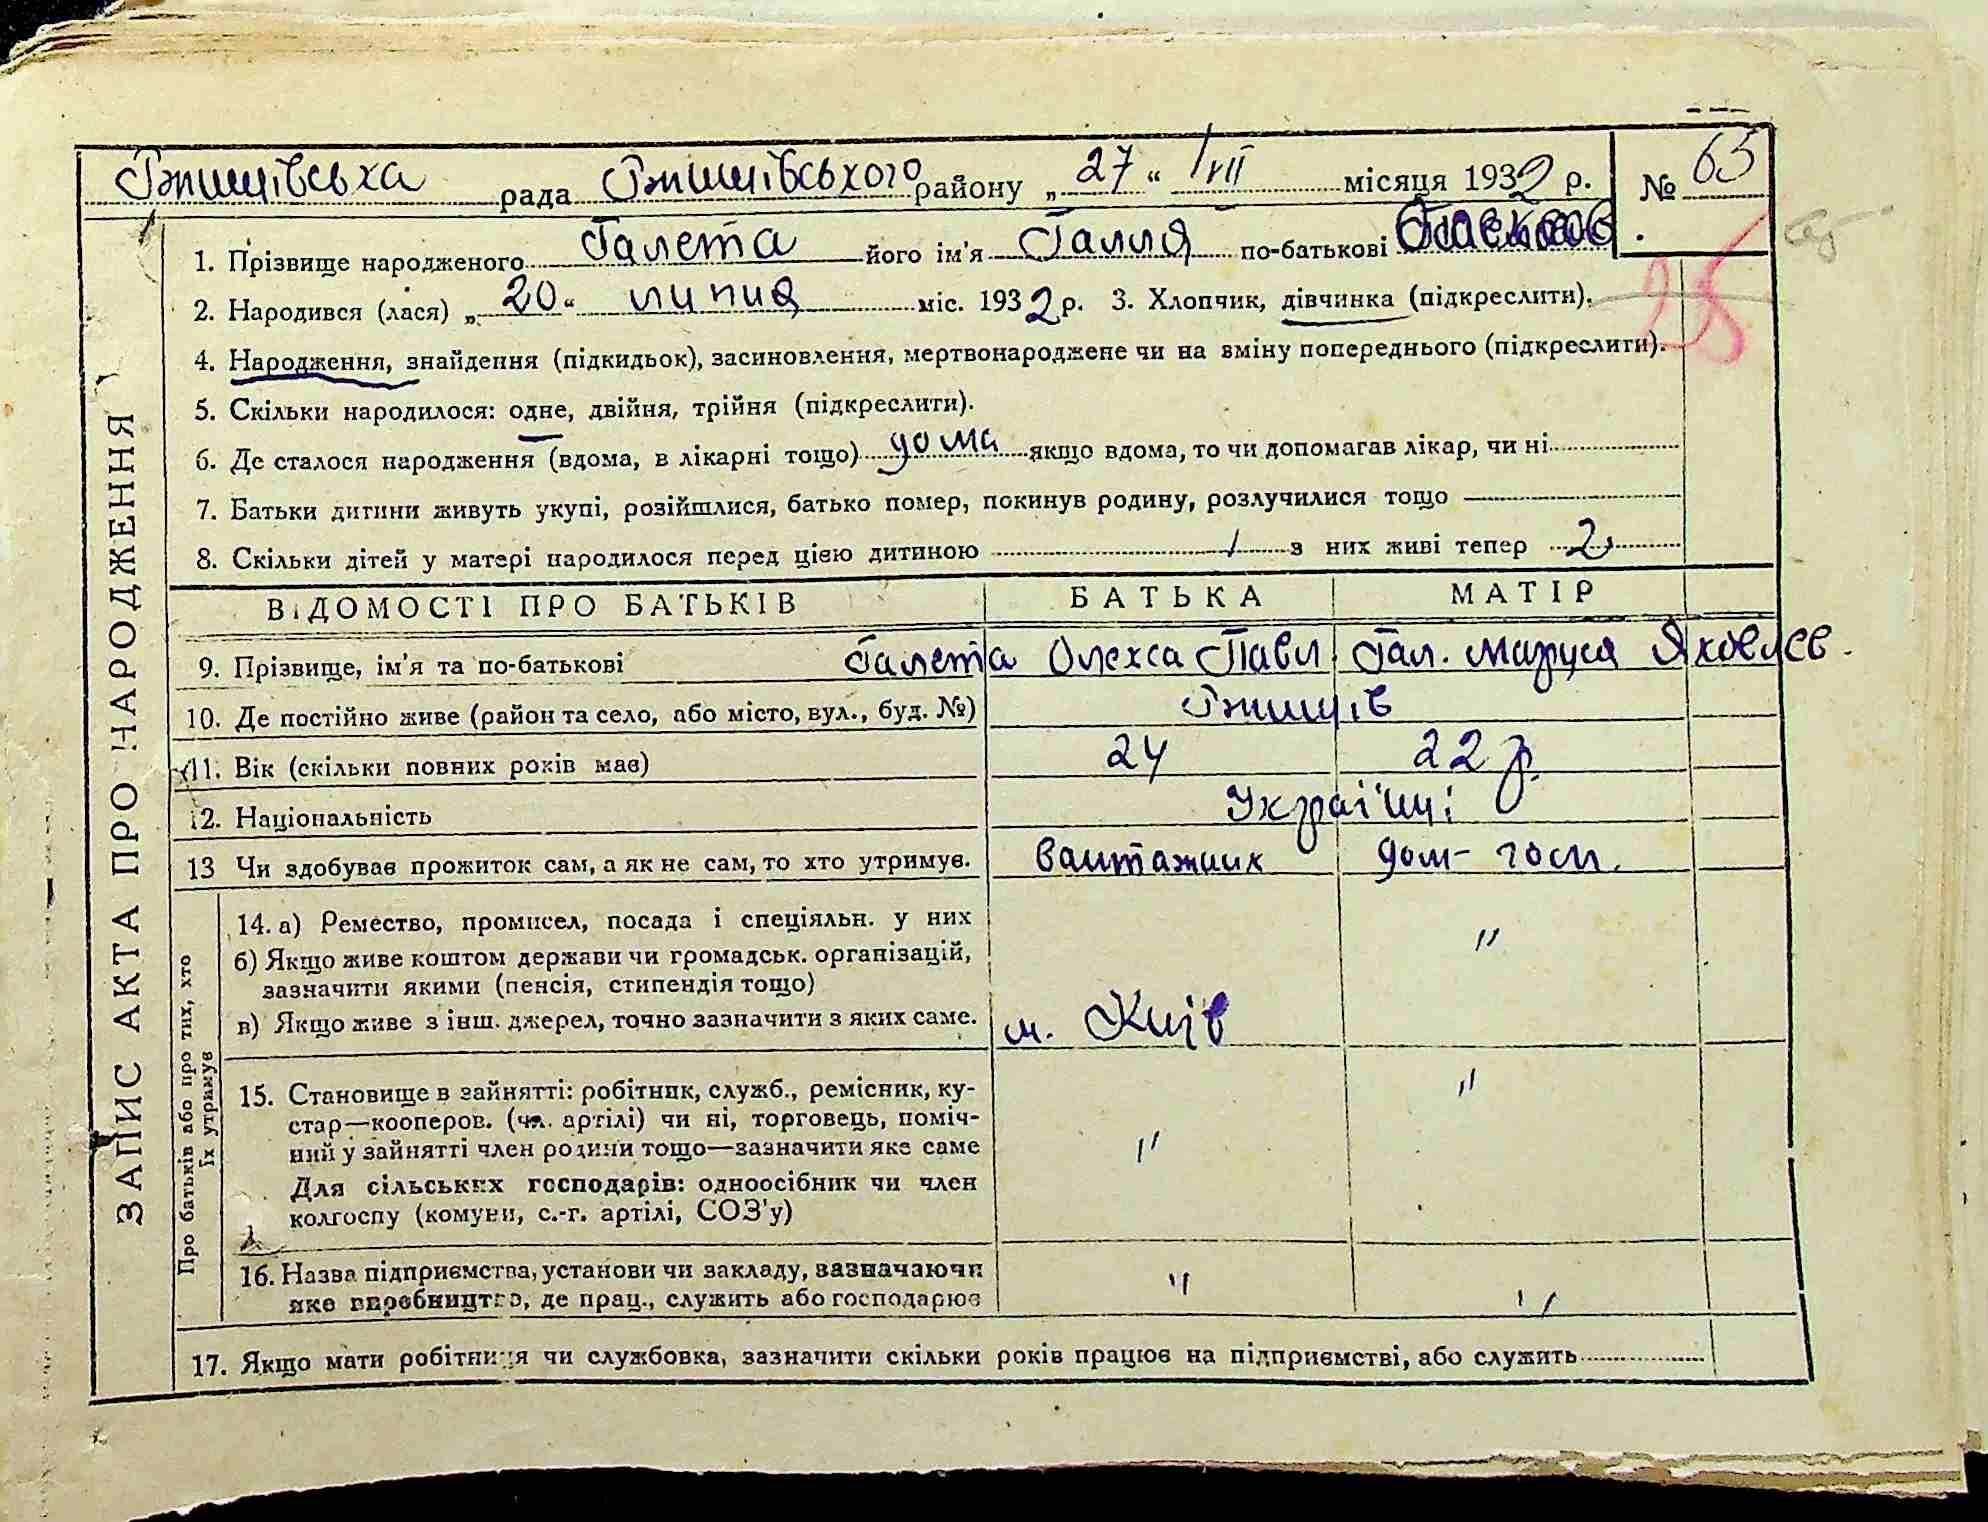 Ржищівська рада Ржищівського району „27“ VII місяця 1932 р. № 65
1. Прізвище народженого Галета його ім'я Галля по-батькові
2. Народився (лася) „20“ липня міс. 1932 р. 3. Хлопчик, дівчинка (підкреслити).
28
4. Народження, знайдення (підкидьок), засиновлення, мертвонароджене чи на зміну попереднього (підкреслити).
5. Скільки народилося: одне, двійня, трійня (підкреслити).
6. Де сталося народження (вдома, в лікарні тощо) дома якщо вдома, то чи допомагав лікар, чи ні
7. Батьки дитини живуть укупі, розійшлися, батько помер, покинув родину, розлучилися тощо
8. Скільки дітей у матері народилося перед цією дитиною 1 з них живі тепер 2
ВІДОМОСТІ ПРО БАТЬКІВ БАТЬКА МАТІР
9. Прізвище, ім'я та по-батькові Галета Олекса Павл Гал. Маруся Яковлев.
10. Де постійно живе (район та село, або місто, вул., буд. №) Ржищів
11. Вік (скільки повних років має) 24 22 р.
12. Національність Українці
13 Чи здобуває прожиток сам, а як не сам, то хто утримує. вантажник дом-госп.
14. а) Ремество, промисел, посада і спеціяльн. у них "
б) Якщо живе коштом держави чи громадськ. організацій,
зазначити якими (пенсія, стипендія тощо)
в) Якщо живе з інш. джерел, точно зазначити з яких саме. м. Київ
15. Становище в зайнятті: робітник, служб., ремісник, ку- "
стар—кооперов. (чл. артілі) чи ні, торговець, поміч-
ний у зайнятті член родини тощо—зазначити яке саме "
Для сільських господарів: одноосібник чи член
колгоспу (комуни, с.-г. артілі, СОЗ'у)
16. Назва підприємства, установи чи закладу, зазначаючи "
яке виробництво, де прац., служить або господарює "
17. Якщо мати робітниця чи службовка, зазначити скільки років працює на підприємстві, або служить
ЗАПИС АКТА ПРО НАРОДЖЕННЯ
Про батьків або про тих, хто
їх утримує